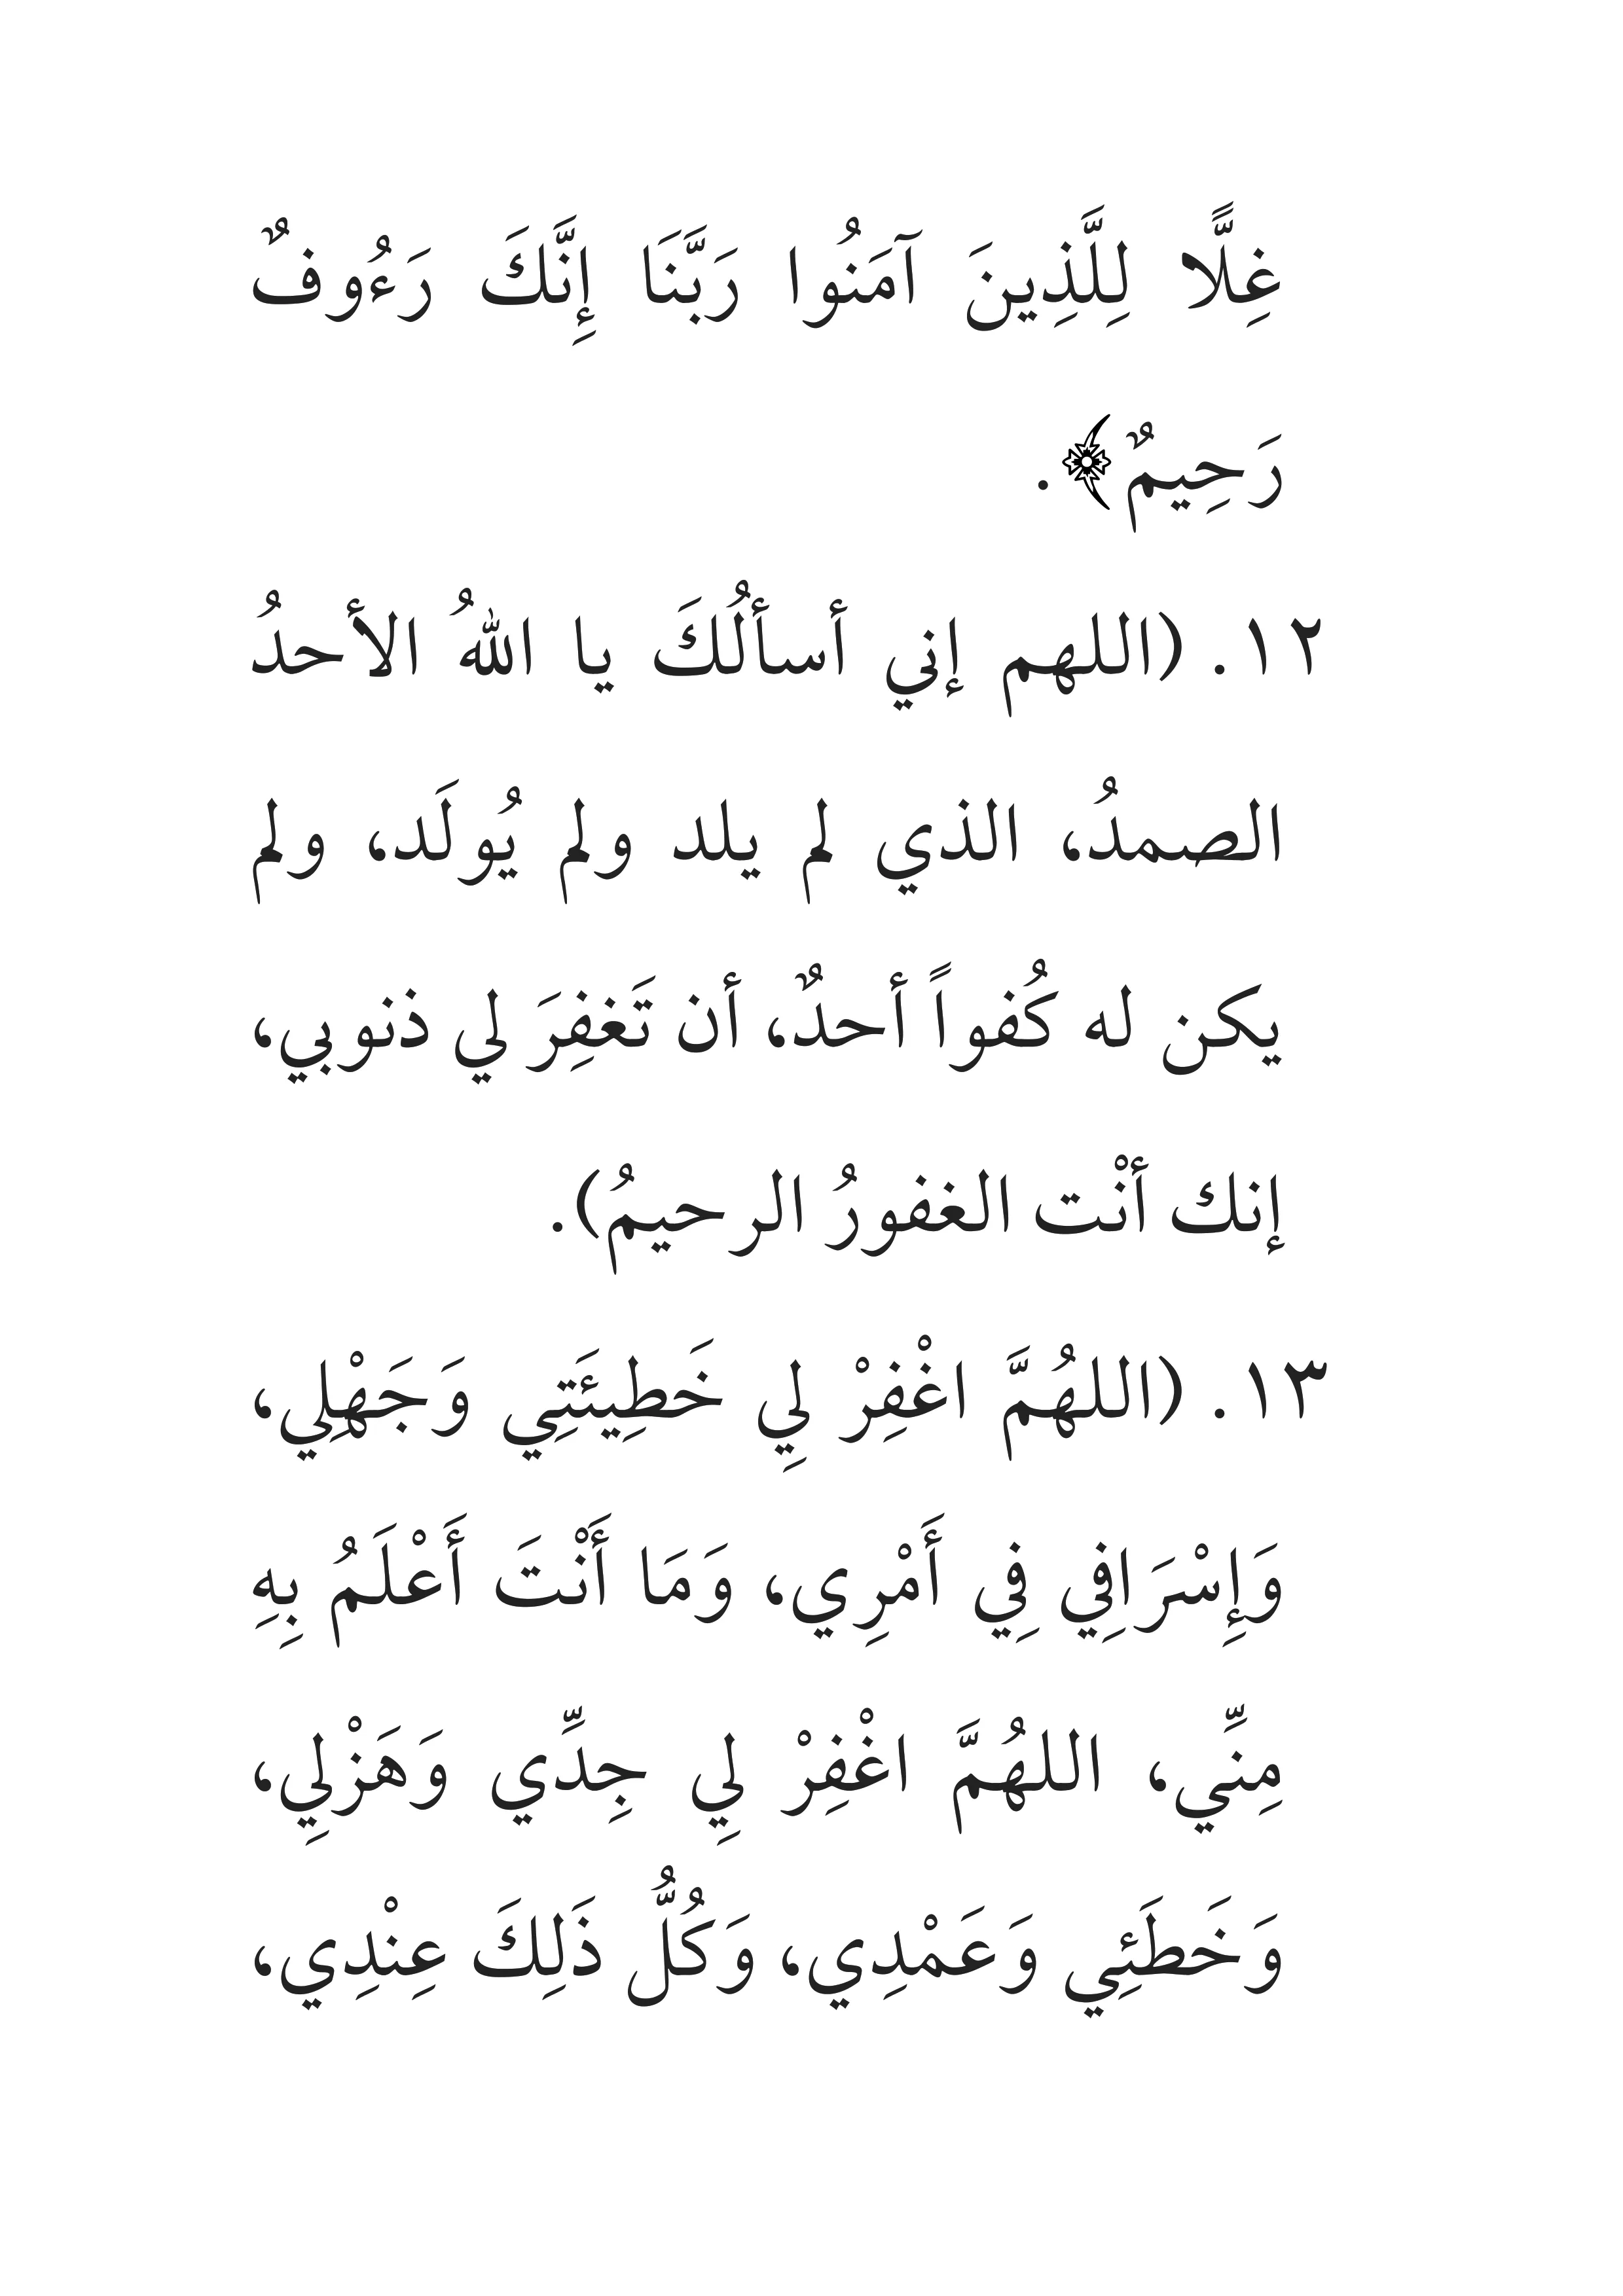 غِلًّا لِلَّذِينَ آمَنُوا رَبَّنَا إِنَّكَ رَءُوفٌ
رَحِيمٌ﴾.
١٢. (اللهم إني أسألُكَ يا اللهُ الأحدُ
الصمدُ، الذي لم يلد ولم يُولَد، ولم
يكن له كُفواً أحدٌ، أن تَغفِرَ لي ذنوبي،
إنك أنْت الغفورُ الرحيمُ).
١٣. (اللهُمَّ اغْفِرْ لِي خَطِيئَتِي وَجَهْلِي،
وَإِسْرَافِي فِي أَمْرِي، وَمَا أَنْتَ أَعْلَمُ بِهِ
مِنِّي، اللهُمَّ اغْفِرْ لِي جِدِّي وَهَزْلِي،
وَخَطَئِي وَعَمْدِي، وَكُلُّ ذَلِكَ عِنْدِي،